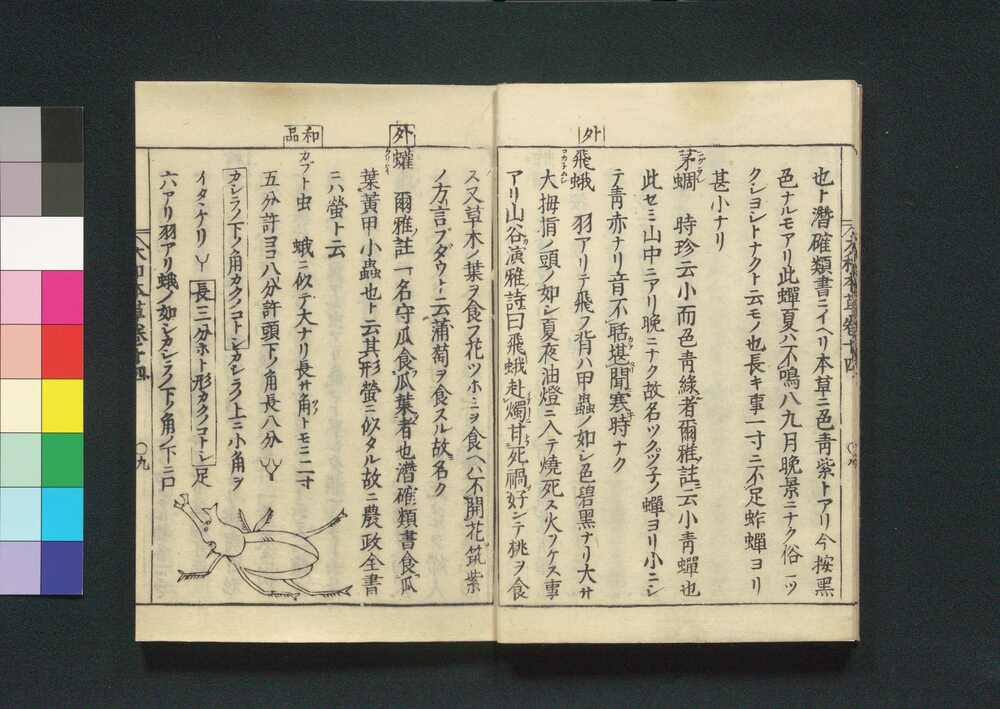 大和本草卷十四
也ト潛確類書ニイヘリ本草ニ色靑紫トアリ今按黑
色ナルモアリ此蟬夏ハ不鳴八九月晩景ニナク俗ニツ
クシヨシトナクト云モノ也長キ事一寸ニ不足蚱蟬ヨリ
甚小ナリ
茅蜩 時珍云小而色靑綠者爾雅註ニ云小靑蟬也
此セミ山中ニアリ晩ニナク故名ツクツ子ノ蟬ヨリ小ニシ
テ靑赤ナリ音不聒堪聞寒時ナク
外
飛蛾 羽アリテ飛フ背ハ甲蟲ノ如シ色碧黑ナリ大サ
コカ子ムシ
大拇指ノ頭ノ如シ夏夜油燈ニ入テ燒死ス火ヲケス事
アリ山谷演雅詩曰飛蛾赴燭甘死禍好シテ桃ヲ食
ス又草木ノ葉ヲ食フ花ツホミヲ食ヘハ不開花筑紫
ノ方言ブダウト云蒲萄ヲ食スル故名ク
外
蠸 爾雅註一名守瓜食瓜葉者也潛確類書食瓜
葉黃甲小蟲也ト云其形螢ニ似タル故ニ農政全書
ニハ螢ト云
和品
カブト虫 蛾ニ似テ大ナリ長サ角トモニ二寸
五分許ヨコ八分許頭下ノ角長八分
カシラノ下ノ角カクノコトシカシラノ上ニ小角ヲ
イタヽケリ 長三分ホト形カクノコトシ 足
六アリ羽アリ蛾ノ如シカシラノ下ノ角ノ下ニ口
大和本草卷十四
〇九